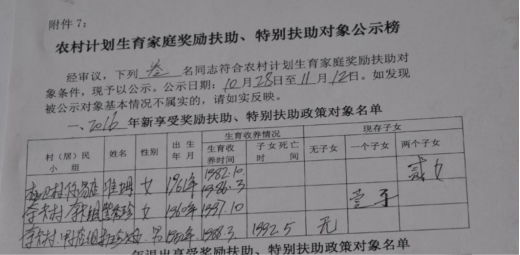 附件7：
农村计划生育家庭奖励扶助、特别扶助对象公示榜
经审议，下列 叁 名同志符合农村计划生育家庭奖励扶助对
象条件，现予以公示。公示日期：10月28日至11月12日。如发现
被公示对象基本情况不属实的，请如实反映。
一、2016年新享受奖励扶助、特别扶助政策对象名单
村（居）民小组 姓名 性别 出生年月 生育收养情况 现存子女
生育收养时间 子女死亡时间 无子女 一个子女 两个子女
女 1961年 1982.10 1986.3 贰女
李 村 女 1960年 1997.10 壹子
村 男 1988.3 1992.5 无
年退出享受奖励扶助、特别扶助政策对象名单